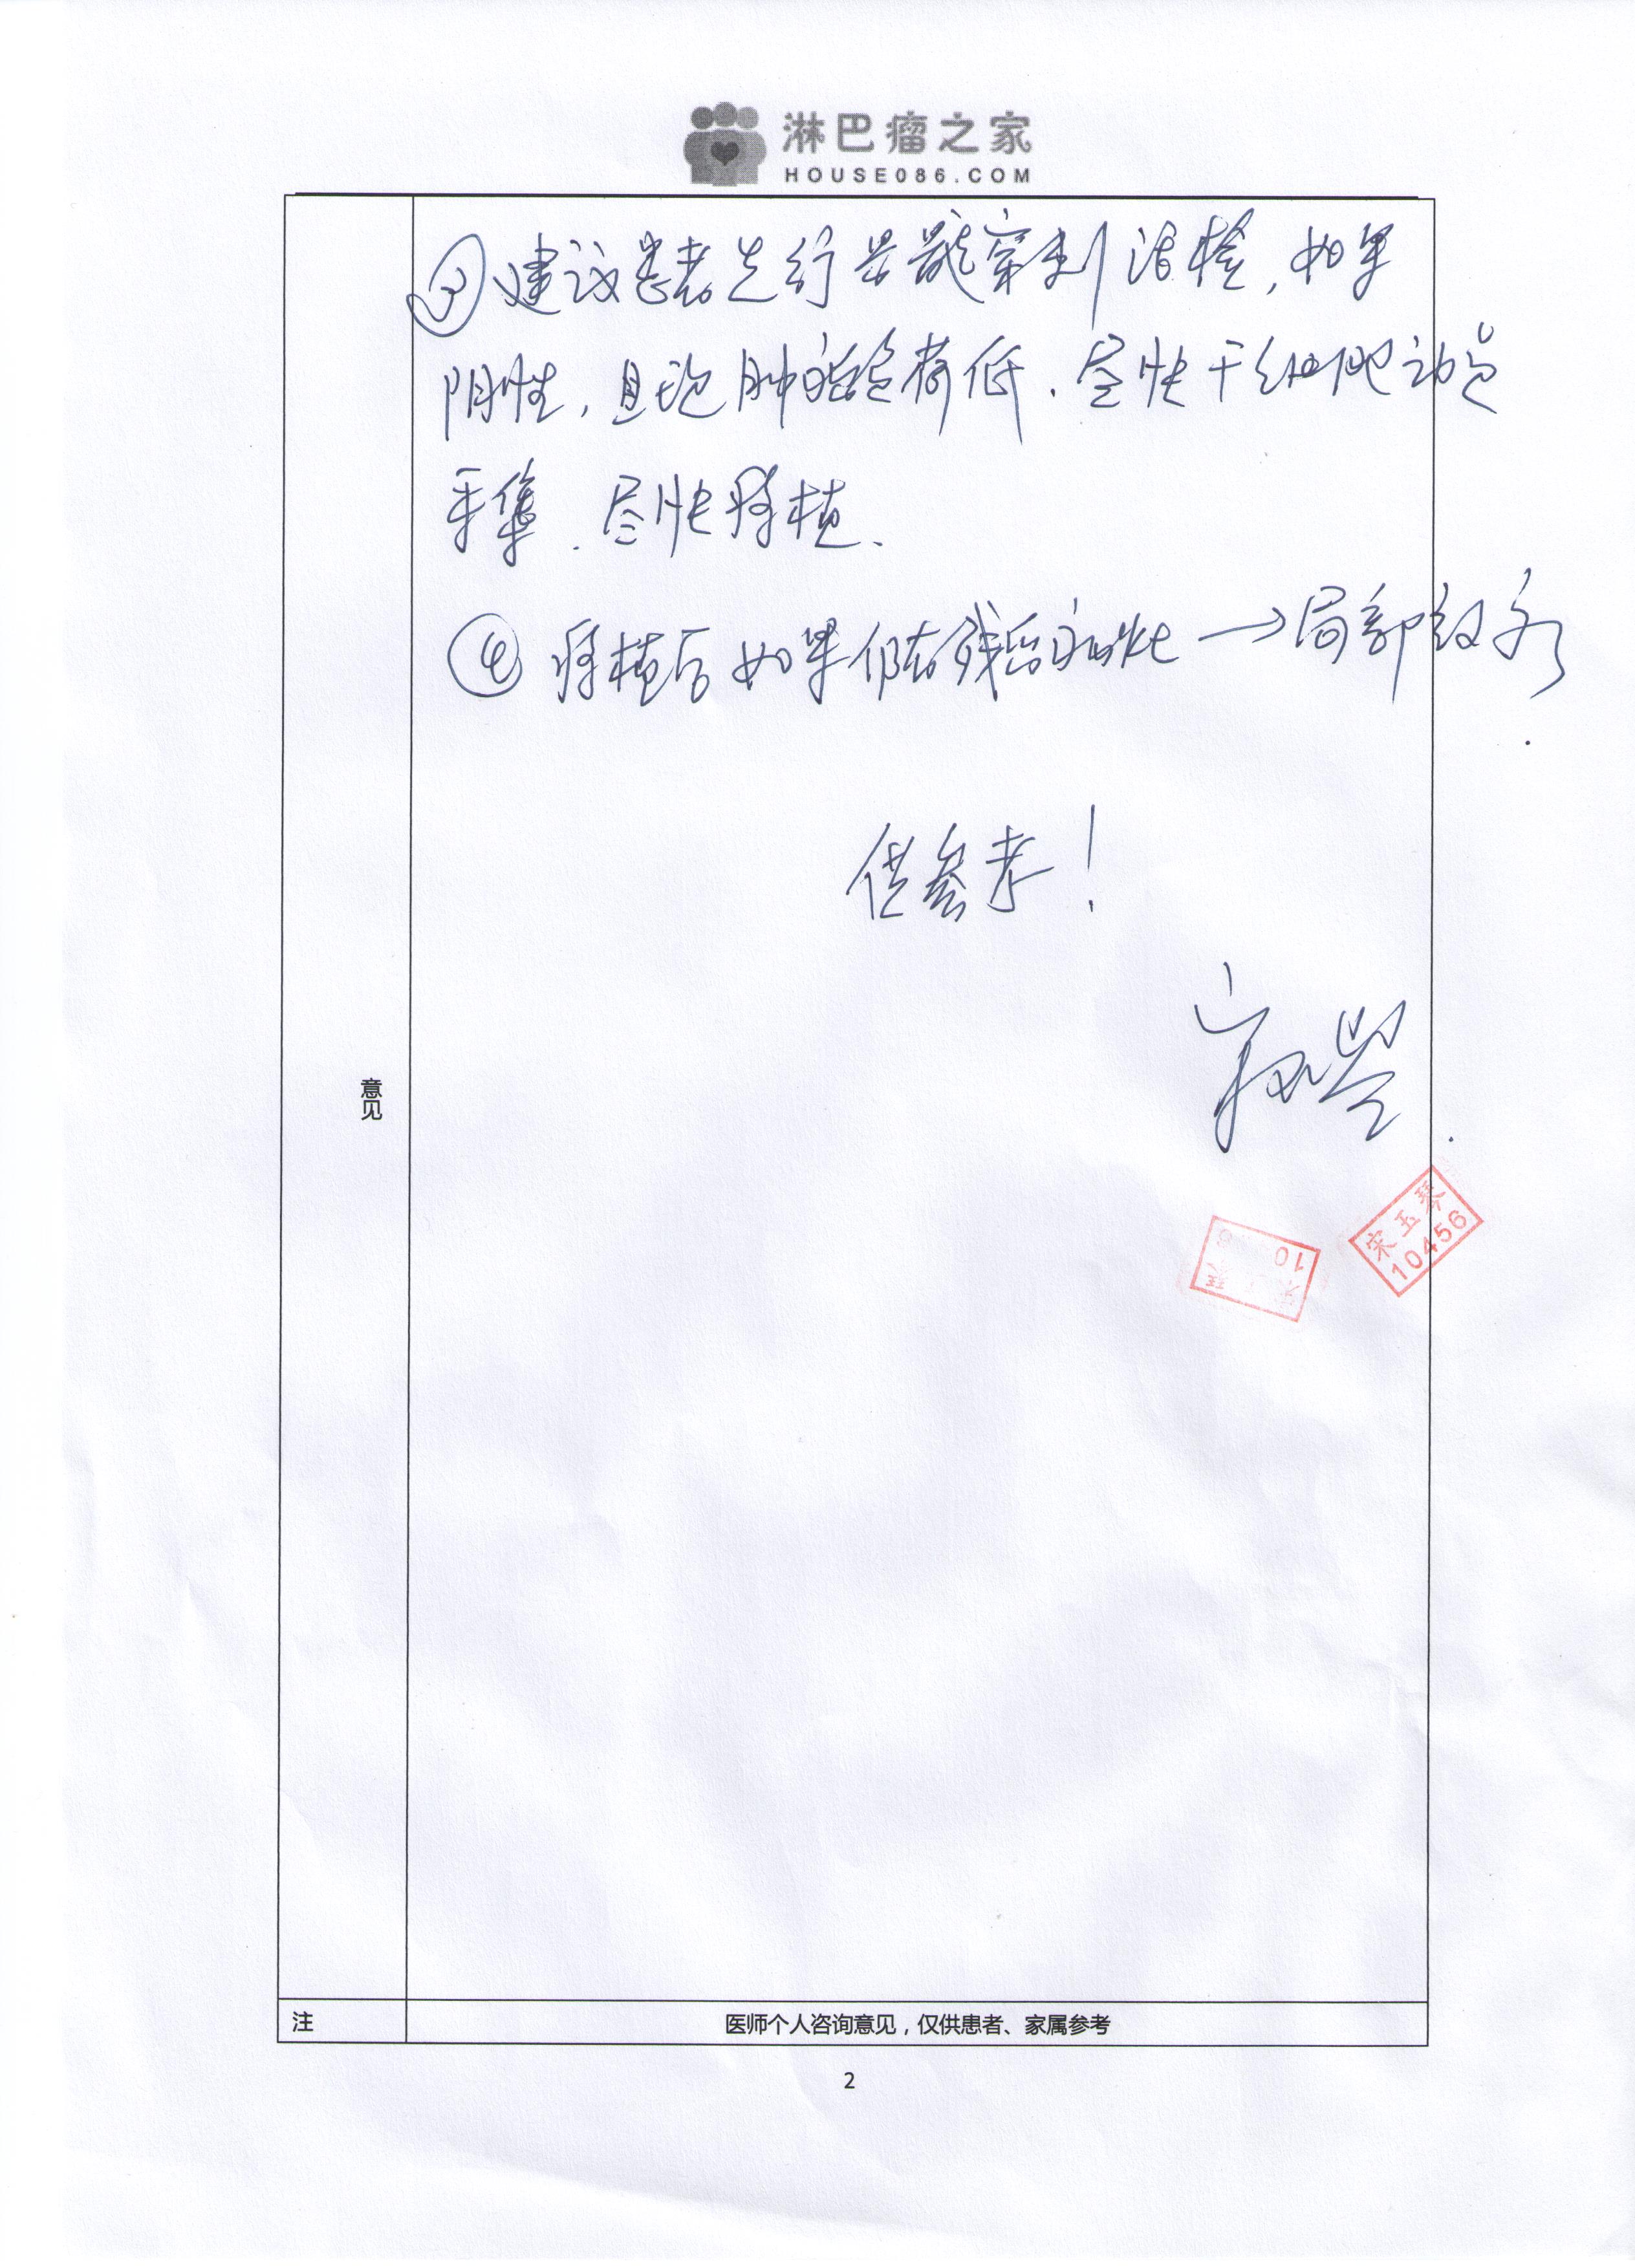 淋巴瘤之家
HOUSE086.COM
③建议患者先行骨髓穿刺活检，如果
阴性，且现肿瘤负荷低．尽快干细胞动员
采集．尽快移植．
④移植后如果仍有残留病灶→局部放疗．
供参考！
宋玉琴
宋玉琴
10456
10
意见
注
医师个人咨询意见，仅供患者、家属参考
2